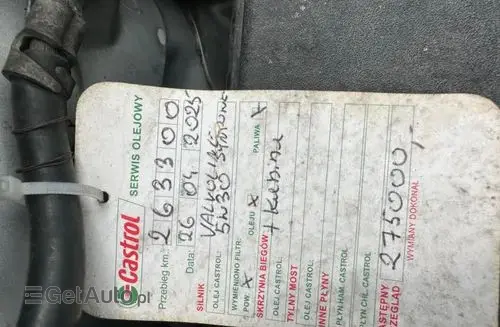 Castrol
SERWIS OLEJOWY
Przebieg km: 263300
Data: 26 04 2025
SILNIK
OLEJ CASTROL: VALVOLINE
5W30
WYMIENIONO FILTR: OLEJU X PALIWA X
POW. X
SKRZYNIA BIEGÓW + Kabina
OLEJ CASTROL:
TYLNY MOST
OLEJ CASTROL:
INNE PŁYNY
PŁYN HAM. CASTROL
PŁYN CHŁ. CASTROL
NASTĘPNY
PRZEGLĄD 275000,-
WYMIANY DOKONAŁ
GetAuto.pl